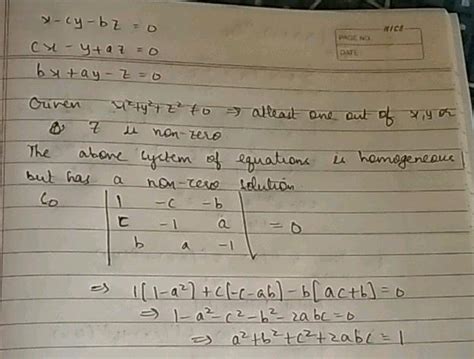 NICE
PAGE NO.
DATE
x - cy - bz = 0
cx - y + az = 0
bx + ay - z = 0
Given x² + y² + z² ≠ 0 ⇒ atleast one out of x, y or
z is non-zero
The above system of equations is homogeneous
but has a non-zero solution
So | 1 -c -b |
| c -1 a | = 0
| b a -1 |
⇒ 1[1-a²] + c[-c-ab] - b[ac+b] = 0
⇒ 1 - a² - c² - b² - 2abc = 0
⇒ a² + b² + c² + 2abc = 1